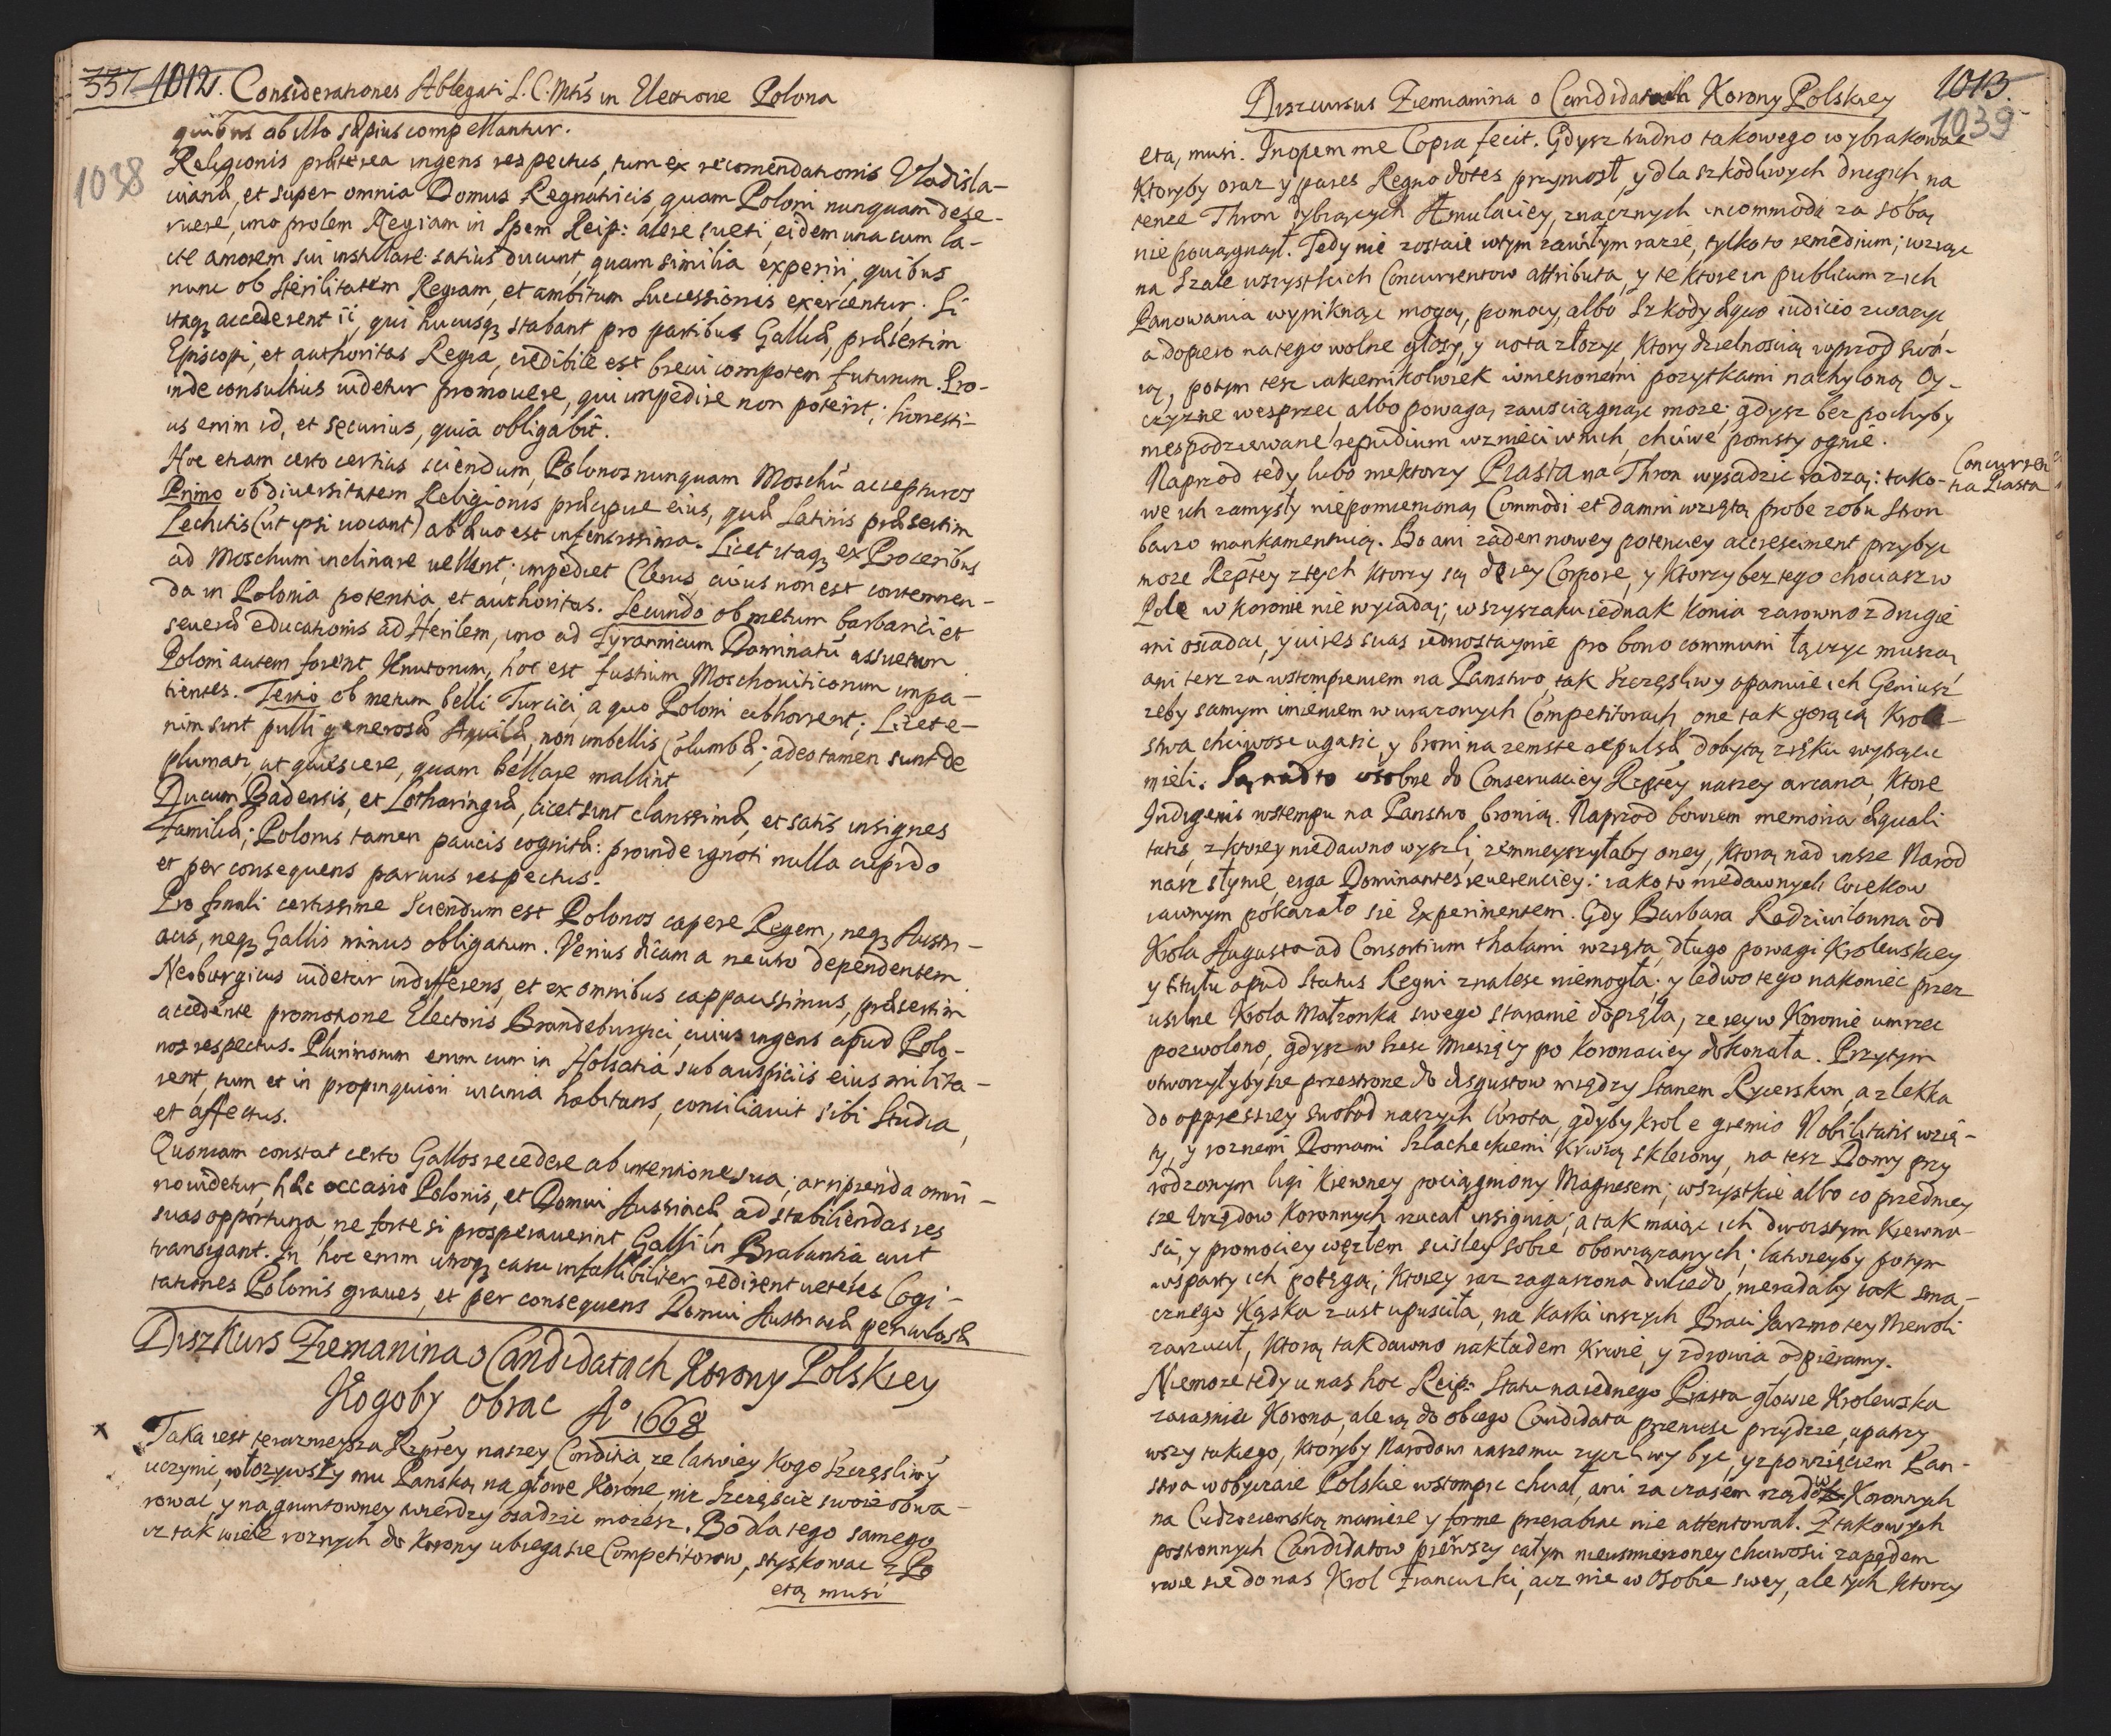 337 1012. Considerationes Ablegati S. C. Mtis in Electione Polona
1038
quibus ab illo sæpius compellantur.
Religionis præterea ingens respectus, tum ex recomendationis Vladisla-
vianæ, et super omnia Domus Regnatricis, quam Poloni nunquam dese-
ruere, imo prolem Regiam in Spem Reip: alere sueti, eidem una cum la-
cte amorem sui instillare satius ducunt, quam similia experiri, quibus
nunc ob Sterilitatem Regiam, et ambitum Successionis exercentur. Si
itaqz accederent ii, qui hucusqz stabant pro partibus Galliæ, præsertim
Episcopi, et authoritas Regia, credibile est brevi compotem futurum. Pro-
inde consultius videtur promovere, qui impedire non poterit; honesti-
us enim id, et securius, quia obligabit.
Hoc etiam certo certius sciendum, Polonos nunquam Moschū accepturos
Primo ob diversitatem Religionis præcipue eius, quæ Latinis præsertim
Lechitis (ut ipsi vocant) ab ævo est infensissima. Licet itaqz ex Proceribus
ad Moschum inclinare vellent; impediet Clerus, cuius non est contemnen-
da in Polonia potentia, et authoritas. Secundo ob metum barbariei et
severæ educationis ad Herilem, imo ad Tyrannicum Dominatū assuetum
Poloni autem forent Knutorum, hoc est fustium Moschoviticorum impa-
tientes. Tertio ob metum belli Turcici, a quo Poloni abhorrent; Licet e-
nim sunt pulli generosæ Aquilæ, non imbellis Columbæ; adeo tamen sunt de
plumati, ut quiescere, quam bellare mallint
Ducum Badensis, et Lotharingiæ, licet sint clarissimæ, et satis insignes
Familiæ; Polonis tamen paucis cognitæ: proinde ignoti nulla cupido
et per consequens parvus respectus.
Pro finali certissime Sciendum est Polonos capere Regem, neqz Austri-
acis, neqz Gallis minus obligatum. Verius dicam a neutro dependentem
Neoburgicus videtur indifferens, et ex omnibus cappacissimus, præsertim
accedente promotione Electoris Brandeburgici, cuius ingens apud Polo-
nos respectus. Plurimorum enim cum in Holsatia sub auspiciis eius milita-
rent, tum et in propinquiori vicinia habitans, conciliavit sibi Studia,
et affectus.
Quoniam constat certo Gallos recedere ab intentione sua; arripienda omni-
no videtur hæc occasio Polonis, et Domui Austriacæ ad stabiliendas res
suas opportuna, ne forte si prosperaverint Galli in Brabantia aut
transigant. In hoc enim utroqz casu infallibiliter redirent veteres Cogi-
tationes Polonis graves, et per consequens Domui Austriacæ periculosæ
Diszkurs Ziemanina o Candidatach Korony Polskiey
Kogoby obrac Aᵒ 1668
Taka iest terazniejsza Rzptey naszey Condicia, ze łatwiey kogo Szczęsliwỹ
uczynic, włozywszy mu Panską na głowę Koronę, niz Szczęscie swoie obwa-
rowac, y na gruntowney twierdzy osadzic mozesz. Bo dla tego samego
iz tak wiele roznych do Korony ubiega sie Competitorow, styskowac z Po
etą musi

Diszcursus Ziemianina o Candidatach Korony Polskiey 1013.
1039
eta, musi. Inopem me Copia fecit. Gdysz trudno takowego wybrakowac
ktoryby oraz y pares Regno dotes przyniosł, y dla szkodliwych drugich na
tenze Thron dybiących Æmulaciey, znacznych incommoda za sobą
nie pociągnął. Tedy nie zostaie w tym zawiłym razie, tylko to remedium; wziąc
na Szale wszystkich Concurrentow attributa, y te ktore in publicum z ich
Panowania wyniknąc mogą, pomocy, albo Szkody æquo iudicio zwazyc,
a dopiero na tego wolne głosy, y vota złozyc, ktory dzielnoscią wprzod swo-
ią, potym tesz iakiemikolwiek wniesionemi pozytkami nachyloną Oy-
czyznę wesprzec, albo powagą zausciągnąc moze; gdysz bez pochyby
niespodziewane repudium wznieci w nich chciwe pomsty ognie.
Naprzod tedy lubo niektorzy Piasta na Thron wysadzic radzą: tako-
Concurren
tia Piasta
we ich zamysły niepomiernoną Commodi et damni wziętą probe z obu Stron
barzo mankamentuią. Bo ani zaden nowey potenciey accresciment przybyc
moze Rzptey z tych ktorzy są de iey Corpore, y ktorzy bez tego chociasz w
Pole w Koronie nie wyiadą; w szyszaku iednak konia zarowno z drugie
mi osiadac, y vires suas iednostaynie pro bono communi łączyc muszą,
ani tesz za wstompieniem na Panstwo, tak Szczęsliwy opanuie ich Geniusz
zeby samym imieniem w urazonych Competitorach, one tak gorącą Krole-
stwa chciwosc ugasic, y broni na zemste repulsæ dobytą z ręku wytrącic
mieli. Są nadto osobne do Conservaciey Rzptey naszey arcana, ktore
Indigenis wstempu na Panstwo bronią. Naprzod bowiem memoria æquali
tatis, z ktorey niedawno wyszli, zmnieyszyłaby oney, ktorą nad insze Narod
nasz słynie, erga Dominantes reverenciey: iako to niedawnych Wiekow
iawnym pokazało sie Experimentem. Gdy Barbara Radziwiłowna od
Krola Augusta ad Consortium thalami wzięta, długo powagi Krolewskiey
y titułu apud Status Regni znalesc niemogła; y ledwo tego nakoniec przez
usilne Krola Małzonka swego staranie dopięła, ze iey w Koronie umrzec
pozwolono, gdysz w szesc Miesięcy po Koronaciey dokonała. Przytym
otworzyłyby sie przestrone do disgustow między Stanem Rycerskim, a z lekka
do oppressiey swobod naszych Wrota, gdyby Krol e gremio Nobilitatis wzię-
ty, y roznemi Domami Szlacheckiemi krwią sklecony, na tesz Domy przy
rodzonym ligi krewney pociągniony Magnesem; wszystkie albo co przedniey
sze Urzędow Koronnych rzucał insignia; a tak maiąc ich dwoistym Krewno-
sci, y promociey węzłem scisley sobie obowiązanych; łatwieyby potym
wsparty ich potęgą; ktorey raz zagaszona dulcedo, nieradaby tak sma-
cznego kąska z ust upusciła, na karki inszych Braci Jarzmo tey Niewoli
zarzucił, ktorą tak dawno nakładem krwie, y zdrowia odpieramy.
Niemoze tedy u nas hoc Reip: Statu na iednego Piasta głowie Krolewska
zaiasniec Korona, ale ią do obcego Candidata przeniesc przydzie, upatrzy
wszy takiego, ktoryby Narodowi naszemu zyczliwy był, y z powzięciem Pan-
stwa w obyczaie Polskie wstompic chciał, ani za czasem rządow Koronnych
na Cudzoziemską manierę y formę przerabiac nie attentował. Z takowych
postronnych Candidatow pierwszy całym nieusmierzoney chciwosci zapędem
rwie sie do nas Krol Francuzki, acz nie w Osobie swey, ale tych ktorzy